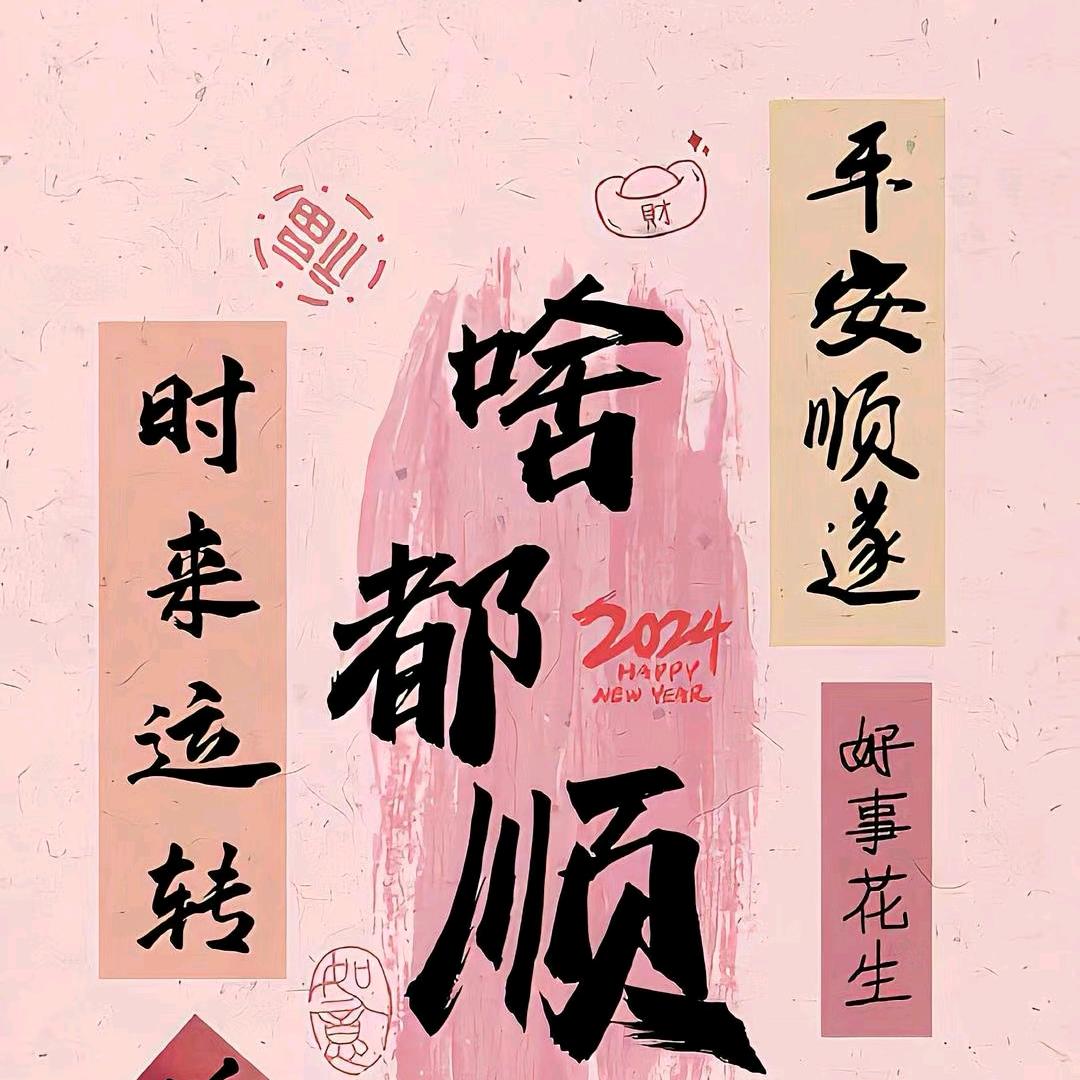 福
財
平安顺遂
时来运转
啥都顺
2024
HAPPY
NEW YEAR
好事花生
如意